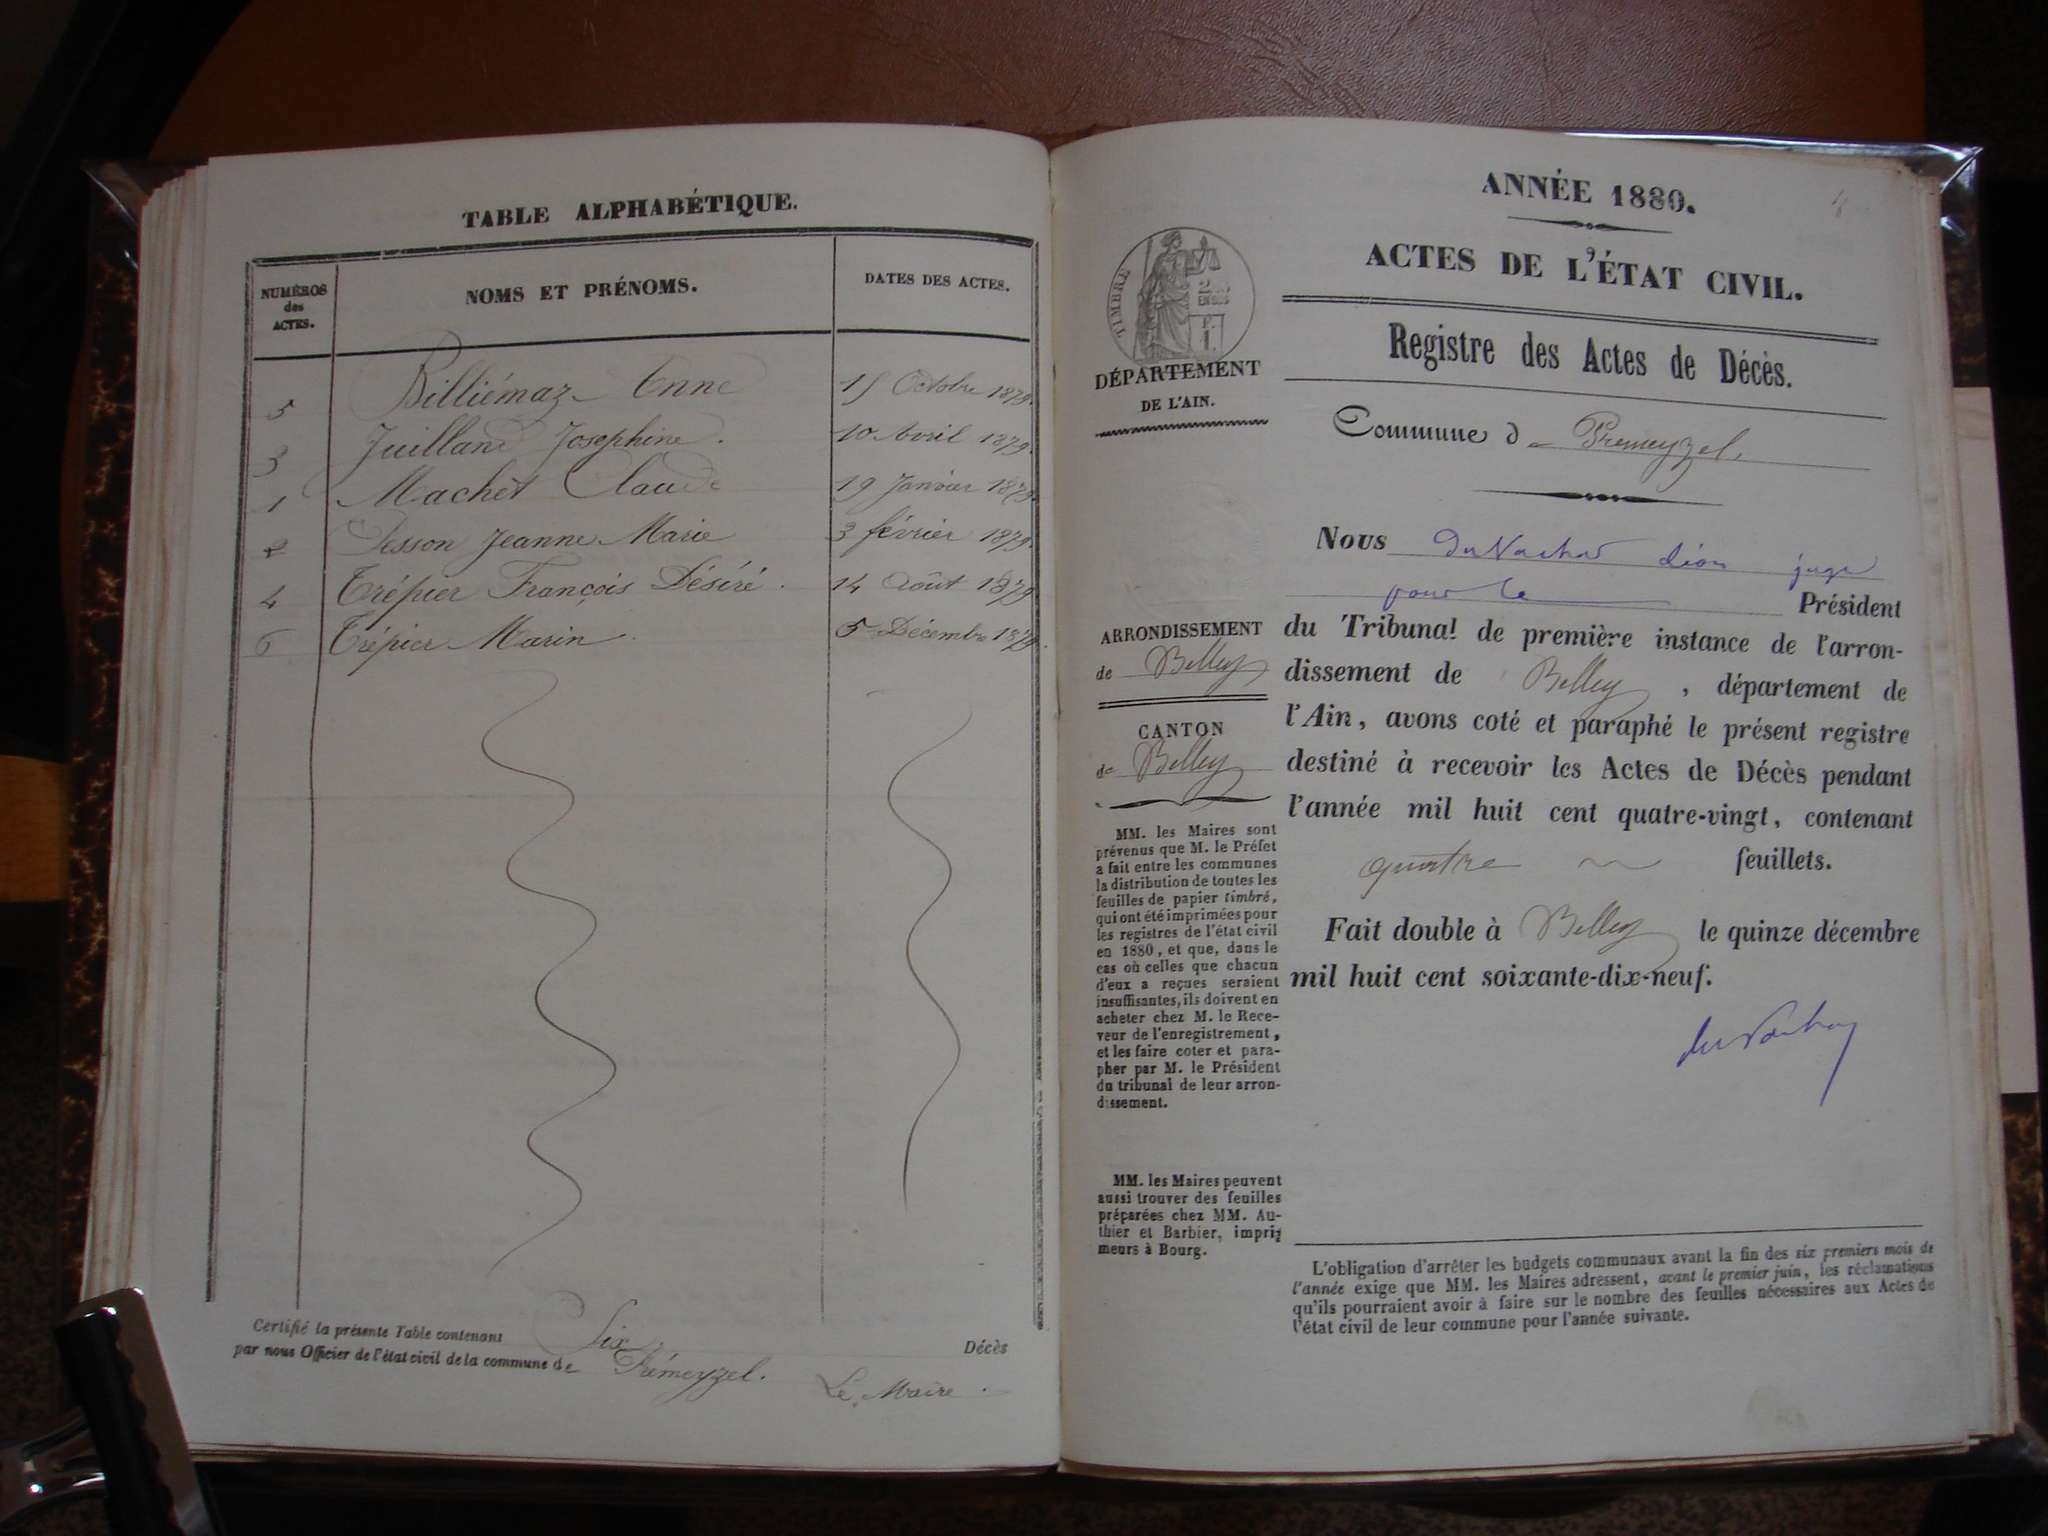 TABLE ALPHABÉTIQUE.
NUMÉROS des ACTES.
NOMS ET PRÉNOMS.
DATES DES ACTES.
5 Billiémaz Enne 15 Octobre 1879.
3 Juilland Josephine. 10 Avril 1879.
1 Machet Claude 19 Janvier 1879.
2 Jeanne Marie 3 février 1879.
4 Trépier François Désiré. 14 Août 1879
6 Trépier Marin. 5 Décembre 1879.
Certifié la présente Table contenant Six Décès
par nous Officier de l'état civil de la commune de Prémeyzel.
Le Maire.
ANNÉE 1880.
ACTES DE L'ÉTAT CIVIL.
TIMBRE
2/10 EN SUS
F. 1.
DÉPARTEMENT
DE L'AIN.
Registre des Actes de Décès.
Commune de Premeyzel,
Nous juge
pour le Président
du Tribunal de première instance de l'arron-
dissement de Belley, département de
l'Ain, avons coté et paraphé le présent registre
destiné à recevoir les Actes de Décès pendant
l'année mil huit cent quatre-vingt, contenant
quatre feuillets.
Fait double à Belley le quinze décembre
mil huit cent soixante-dix-neuf.
ARRONDISSEMENT
de Belley
CANTON
de Belley
MM. les Maires sont
prévenus que M. le Préfet
a fait entre les communes
la distribution de toutes les
feuilles de papier timbré,
qui ont été imprimées pour
les registres de l'état civil
en 1880, et que, dans le
cas où celles que chacun
d'eux a reçues seraient
insuffisantes, ils doivent en
acheter chez M. le Rece-
veur de l'enregistrement,
et les faire coter et para-
pher par M. le Président
du tribunal de leur arron-
dissement.
MM. les Maires peuvent
aussi trouver des feuilles
préparées chez MM. Au-
thier et Barbier, impri-
meurs à Bourg.
L'obligation d'arrêter les budgets communaux avant la fin des six premiers mois de
l'année exige que MM. les Maires adressent, avant le premier juin, les réclamations
qu'ils pourraient avoir à faire sur le nombre des feuilles nécessaires aux Actes de
l'état civil de leur commune pour l'année suivante.